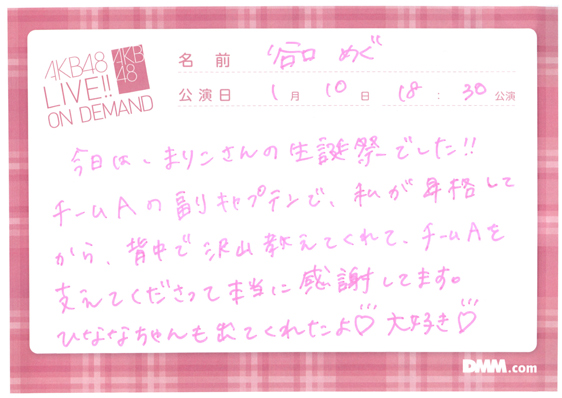 AKB48
LIVE!!
ON DEMAND
AKB
48
名前 谷口 めぐ
公演日 1月10日 18:30公演
今日は、まりこさんの生誕祭でした!!
チームAの副キャプテンで、私が昇格して
から、背中で沢山教えてくれて、チームAを
支えてくださって本当に感謝してます。
ひななちゃんも出てくれたよ♡ 大好き♡
DMM.com